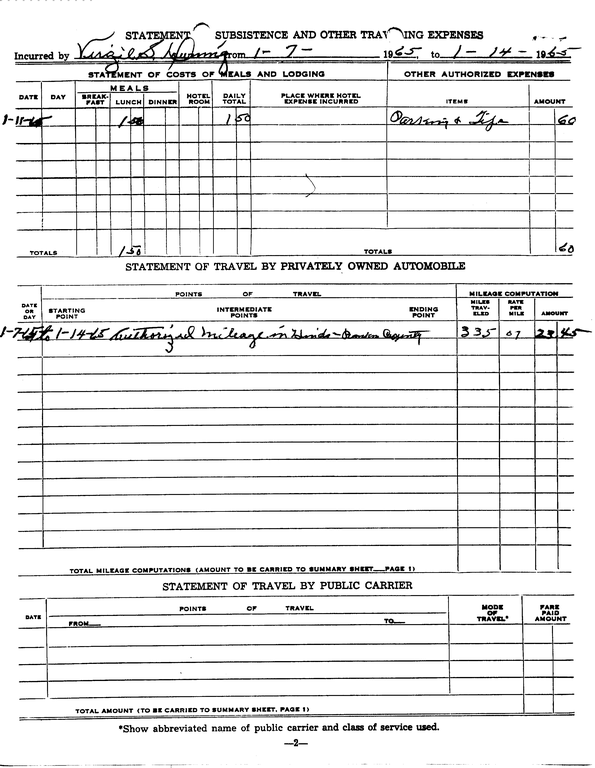 STATEMENT SUBSISTENCE AND OTHER TRAV ING EXPENSES
Incurred by Virgil S from 1-7- 1965, to 1-14-1965
STATEMENT OF COSTS OF MEALS AND LODGING OTHER AUTHORIZED EXPENSES
DATE DAY MEALS HOTEL ROOM DAILY TOTAL PLACE WHERE HOTEL EXPENSE INCURRED ITEMS AMOUNT
BREAK-FAST LUNCH DINNER
1-11-65 1 50 1 50 Parking & Tips 60
TOTALS 1 50 TOTALS 60
STATEMENT OF TRAVEL BY PRIVATELY OWNED AUTOMOBILE
POINTS OF TRAVEL MILEAGE COMPUTATION
DATE OR DAY STARTING POINT INTERMEDIATE POINTS ENDING POINT MILES TRAV-ELED RATE PER MILE AMOUNT
1-7-65 to 1-14-65 Authorized mileage in Hinds - Rankin County 335 07 23 45
TOTAL MILEAGE COMPUTATIONS (AMOUNT TO BE CARRIED TO SUMMARY SHEET PAGE 1)
STATEMENT OF TRAVEL BY PUBLIC CARRIER
DATE POINTS OF TRAVEL MODE OF TRAVEL* FARE PAID AMOUNT
FROM TO
TOTAL AMOUNT (TO BE CARRIED TO SUMMARY SHEET, PAGE 1)
*Show abbreviated name of public carrier and class of service used.
—2—